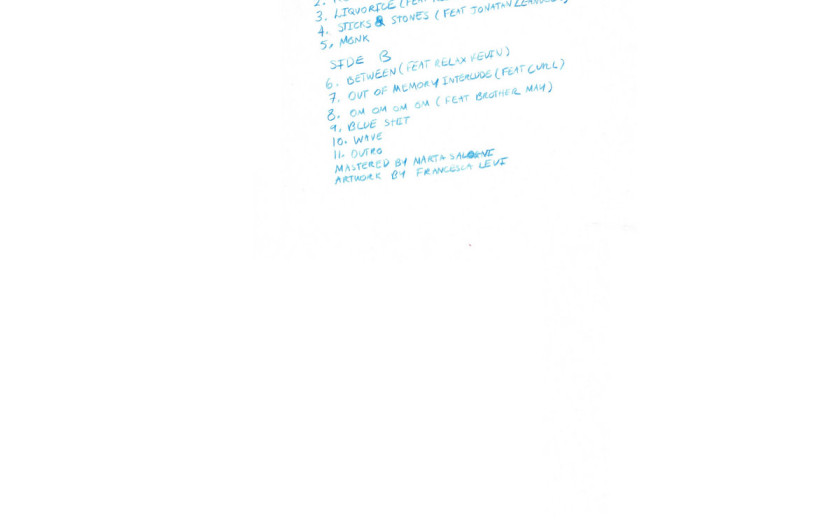 2.
3. LIQUORICE (FEAT
4. STICKS & STONES (FEAT JONATAN
5, MONK
SIDE B
6. BETWEEN (FEAT RELAX KEVIN)
7. OUT OF MEMORY INTERLUDE (FEAT CVALL)
8. OM OM OM OM (FEAT BROTHER MAY)
9. BLUE SHIT
10. WAVE
11. OUTRO
MASTERED BY MARTA SALOGNI
ARTWORK BY FRANCESCA LEVI